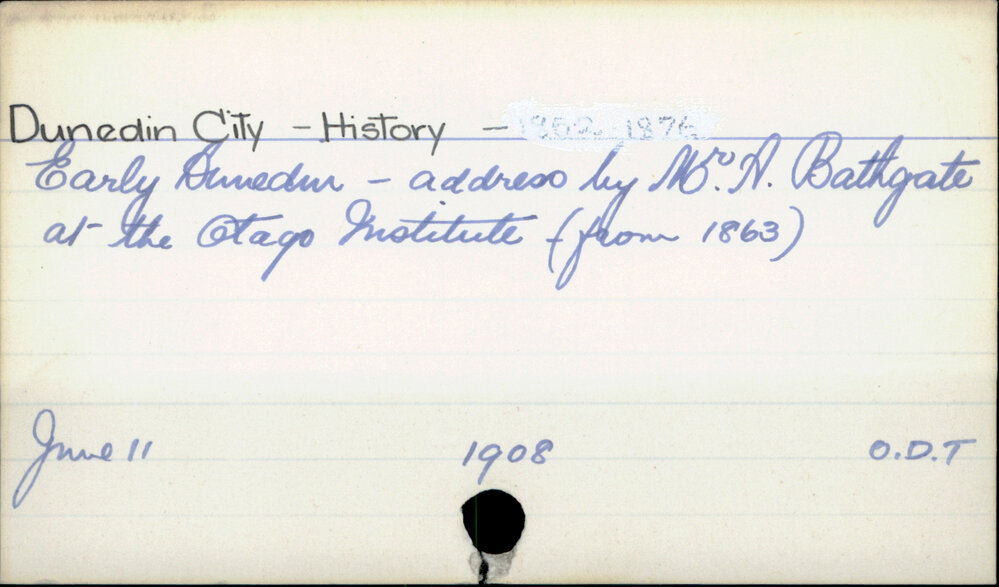 Dunedin City - History -
Early Dunedin - address by Mr. A. Bathgate
at the Otago Institute (from 1863)
June 11 1908 O.D.T